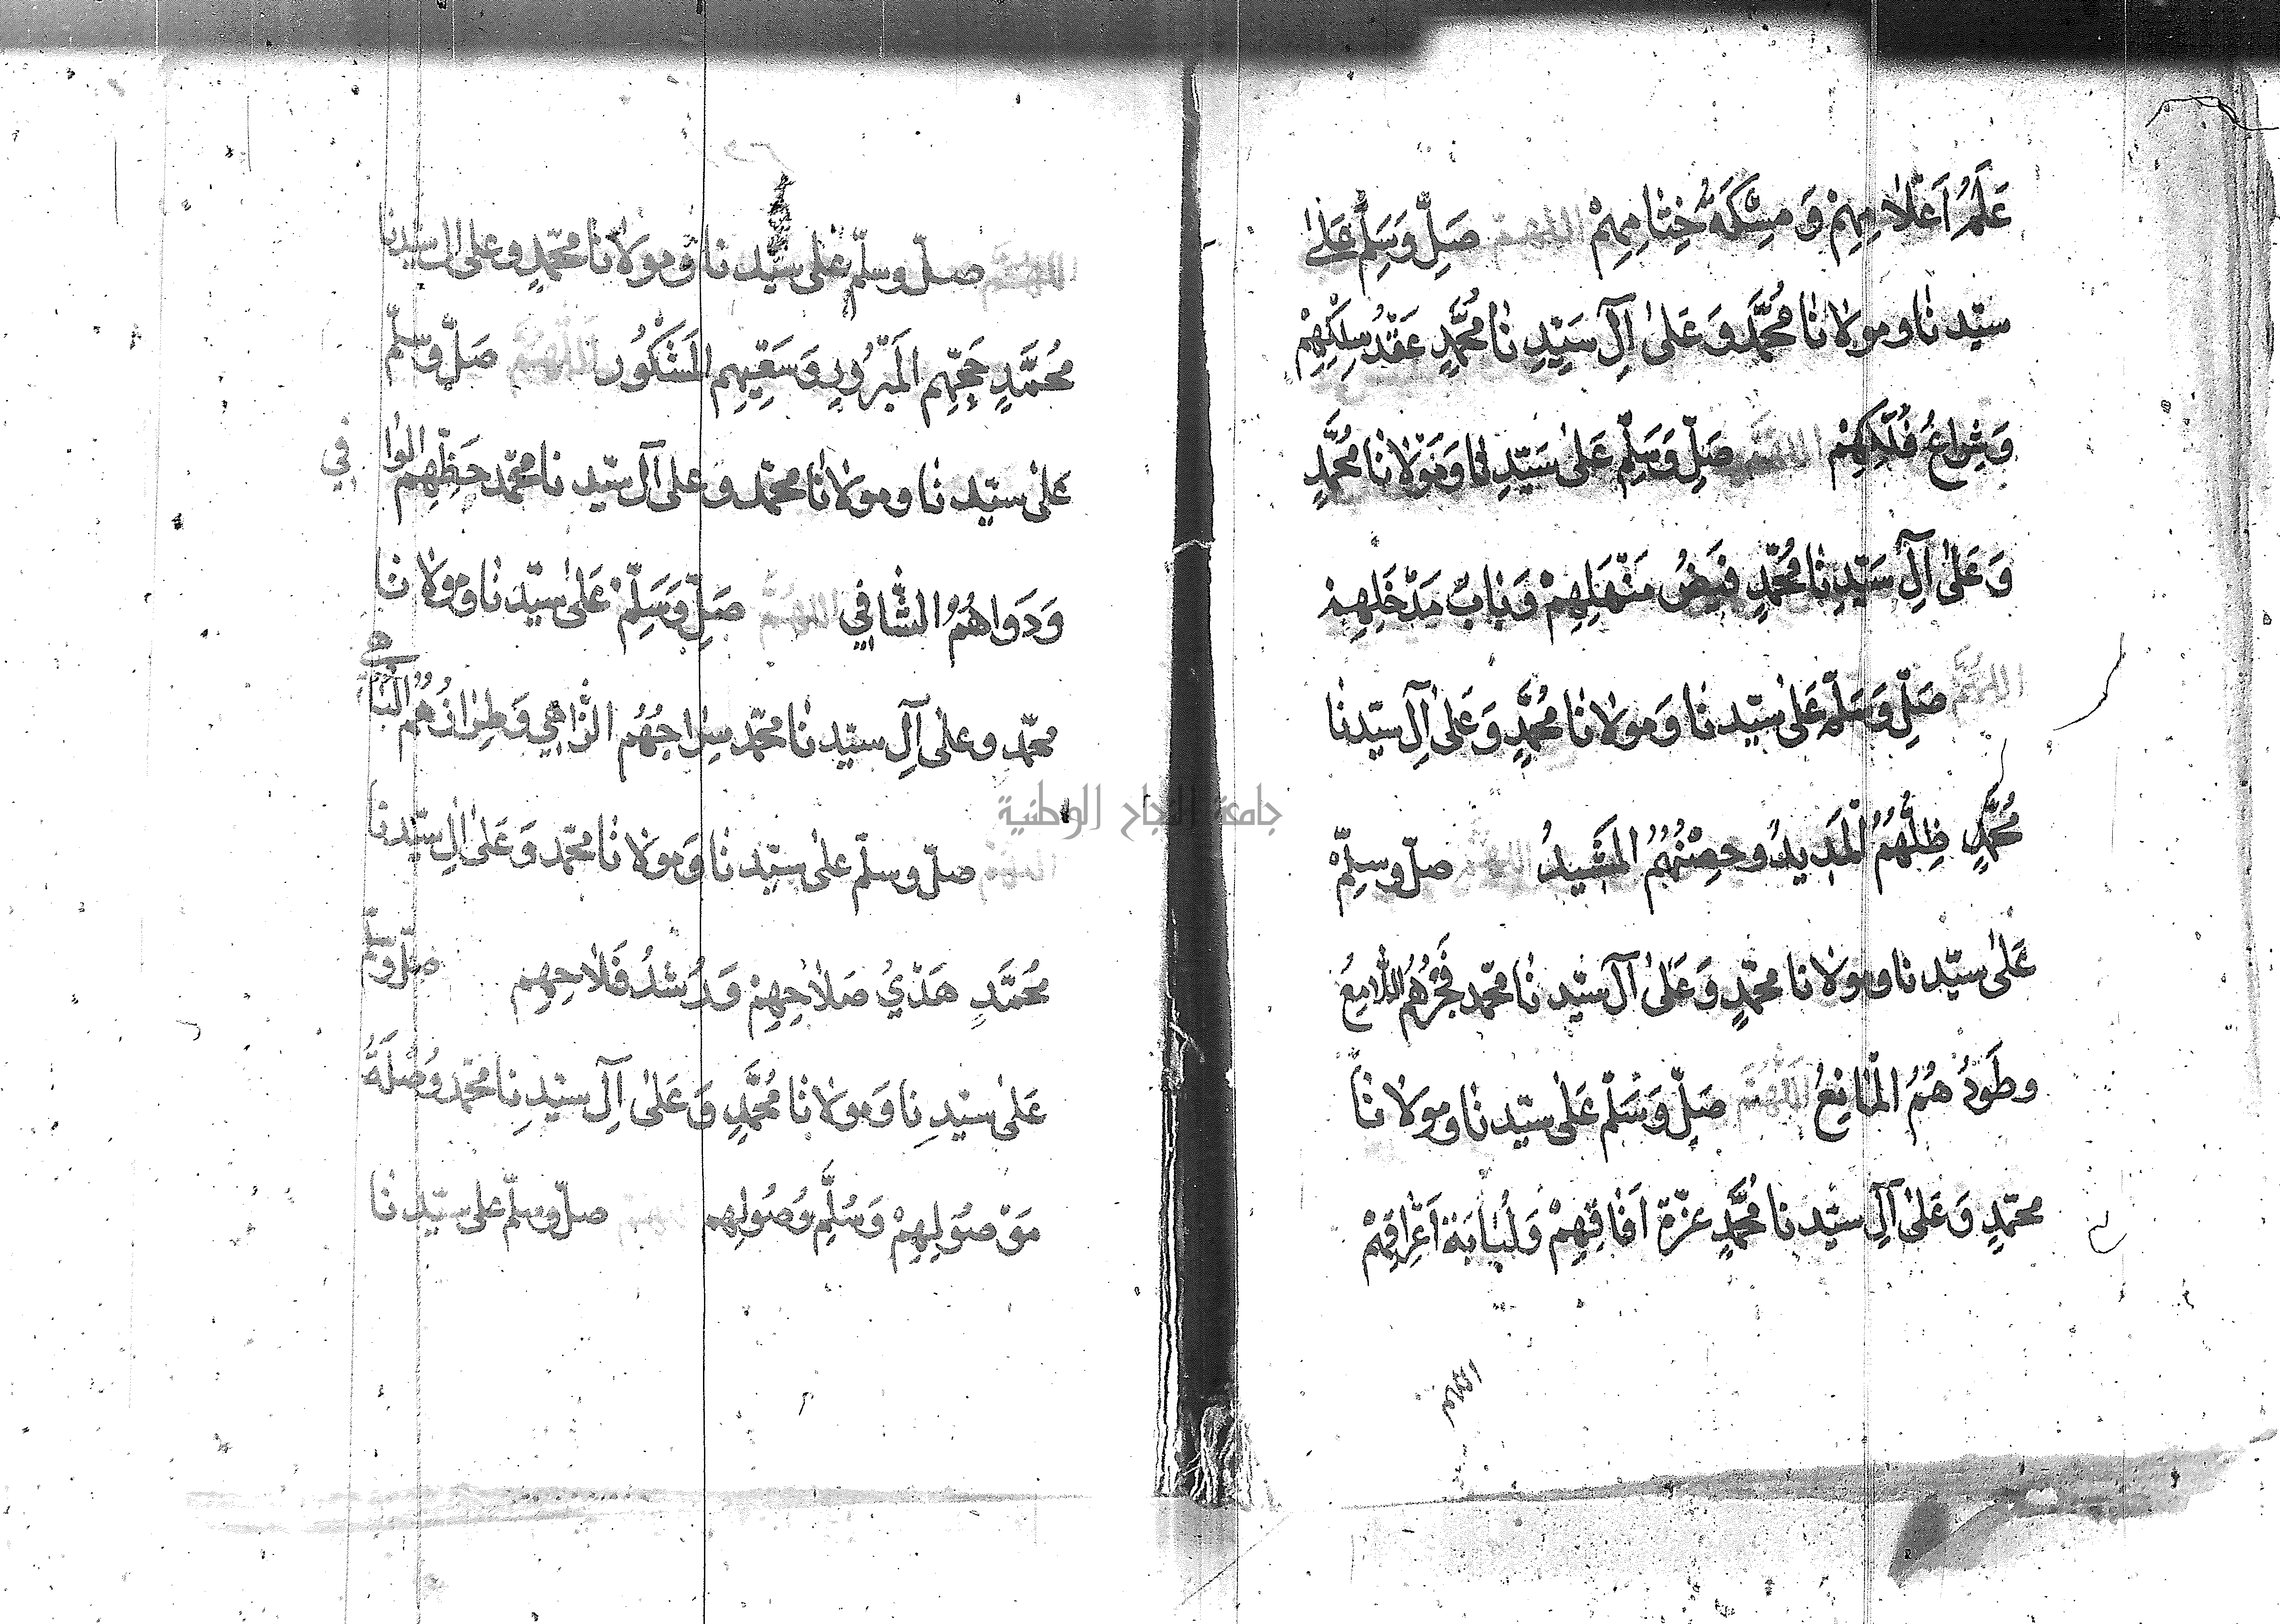 عَلَمُ اَعْلَامِهِمْ وَمِسْكَةُ خِتَامِهِمْ اللهم صَلِّ وَسَلِّمْ عَلَى
سيّدنا ومولانا مُحَمَّدٍ وَعَلَى آلِ سَيِّدِنَا مُحَمَّدٍ عَقْدُ سِلْكِهِمْ
وَشِرَاعُ فُلْكِهِمْ اللهم صَلِّ وَسَلِّمْ عَلَى سَيِّدِنَا وَمَوْلَانَا مُحَمَّدٍ
وَعَلَى آلِ سَيِّدِنَا مُحَمَّدٍ فَيْضُ مَنْهَلِهِمْ وَبَابُ مَدْخَلِهِمْ
اللهم صَلِّ وَسَلِّمْ عَلَى سيّدنا وَمولانا مُحَمَّدٍ وَعَلَى آلِ سيّدنا
مُحَمَّدٍ ظِلُّهُمُ الْمَدِيدُ وحِصْنُهُمُ الْمَشِيدُ اللهم صلّ وسلّمْ
عَلَى سيّدنا ومولانا محمّدٍ وَعَلَى آل سيّدنا محمّد فَجْرُهُمُ اللَّامِعُ
وطَوْدُهُمُ الْمَانِعُ اَللّٰهُمَّ صَلِّ وَسَلِّمْ عَلَى سيّدنا ومولانا
محمّدٍ وَعَلَى آلِ سيّدنا مُحَمَّدٍ غرّة اَفَاقِهِمْ وَلُبَابَة اَعْرَاقِهِمْ
اللهم
اللهم صلّ وسلّم على سيّدنا وَمولانا محمّدٍ وعلى ال سيّدنا
مُحَمَّدٍ حَجِّهِم الْمَبْرُورِ وَسَعْيِهِم الْمَشْكُور اَللّٰهُمَّ صَلِّ وسلّم
عَلَى سيّدنا ومولانا محمّد وعلى آل سيّدنا محمّد حَظِّهِم الوا
في
وَدَوَاهُمُ الشَّافِي اللهم صَلِّ وَسَلِّمْ عَلَى سيّدنا ومولانا
محمّد وعلى آلِ سيّدنا محمّد سِرَاجُهُم الزَّاهِي وَطِرَازُهُم البا
هي
اللهم صلّ وسلّم على سيّدنا وَمولانا محمّد وَعَلَى الِ سيّدنا
مُحَمَّدٍ هَدْيُ صَلَاحِهِمْ وَرُشْدُ فَلَاحِهِم صلّ وسلّم
عَلَى سيّدِنا وَمولانا مُحَمَّدٍ وَعَلَى آلِ سيّدِنا محمّد وُصْلَةُ
مَوْصُولِهِمْ وَسُلَّمِ وُصُولِهِم صلّ وسلّم على سيّدنا
جامعة النجاح الوطنية